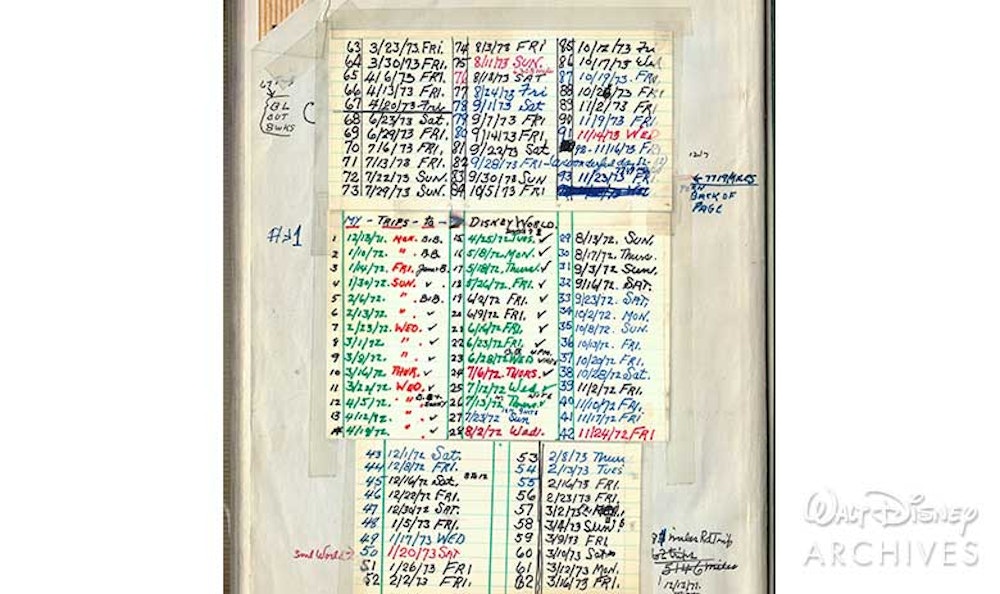 63 3/23/73 FRI. 74 8/3/73 FRI 85 10/12/73 Fri
64 3/30/73 FRI. 75 8/11/73 SUN. 86 10/17/73 Wed
65 4/6/73 FRI. 76 8/18/73 SAT 87 10/19/73. FRI.
66 4/13/73 FRI. 77 8/24/73 Fri 88 10/26/73 FRI
67 4/20/73 Fri 78 9/1/73 Sat 89 11/2/73 FRI
68 6/23/73 Sat. 79 9/7/73 FRI 90 11/9/73 FRI.
69 6/29/73 FRI. 80 9/14/73 FRI. 91 11/14/73 WED
70 7/6/73 FRI. 81 9/22/73 Sat 92 - 11/16/73 FRI
71 7/13/73 FRI. 82 9/28/73 FRI-
72 7/22/73 SUN. 83 9/30/73 SUN 93 11/23/73 FRI.
73 7/29/73 SUN. 84 10/5/73 FRI
BL
OUT
8 WKS
12/7
BACK OF
PAGE
#1
MY - TRIPS - to - DISNEY WORLD.
1 12/13/71. MON. B.B. 15 4/25/72 TUES. ✓ 29 8/13/72. SUN.
2 1/10/72. " B.B. 16 5/8/72 MON. ✓ 30 8/17/72. Thurs.
3 1/14/72. FRI. 17 5/18/72 Thurs. ✓ 31 9/3/72 Sun.
4 1/30/72. SUN. ✓ 18 5/26/72 FRI. ✓ 32 9/16/72. SAT.
5 2/6/72. " B.B. 19 6/2/72 FRI. ✓ 33 9/23/72. SAT.
6 2/13/72 " ✓ 20 6/9/72 FRI. ✓ 34 10/2/72. MON.
7 2/23/72. WED. ✓ 21 6/16/72 FRI. ✓ 35 10/8/72. SUN.
8 3/1/72 " ✓ 22 6/23/72 FRI. ✓ 36 10/13/72 FRI.
9 3/8/72. " ✓ 23 6/28/72 WED 37 10/20/72 FRI.
10 3/16/72 THUR. ✓ 24 7/6/72 THURS. ✓ 38 10/28/72 Sat.
11 3/22/72 WED. ✓ 25 7/12/72 Wed. ✓ 39 11/2/72 FRI.
12 4/5/72. " 26 7/13/72 Thurs. ✓ 40 11/10/72 FRI.
13 4/12/72. " ✓ 27 7/23/72 Sun 41 11/17/72 FRI
4/19/72 " ✓ 28 8/2/72 Wed. 42 11/24/72 FRI
43 12/1/72 Sat. 53 2/8/73 Thur
44 12/8/72 FRI. 54 2/13/73 TUES
45 12/16/72 Sat. 55 2/16/73 FRI.
46 12/22/72 FRI. 56 2/23/73 FRI.
47 12/30/72 SAT. 57 3/2/73
48 1/5/73 FRI. 58 3/4/73 SUN.
49 1/17/73 WED 59 3/9/73 FRI.
50 1/20/73 SAT 60 3/10/73 Sat
51 1/26/73 FRI 61 3/12/73 MON.
52 2/2/73 FRI. 62 3/16/73 FRI.
miles Rd Trip
62 trips
miles
12/13/71.
WALT DISNEY
ARCHIVES